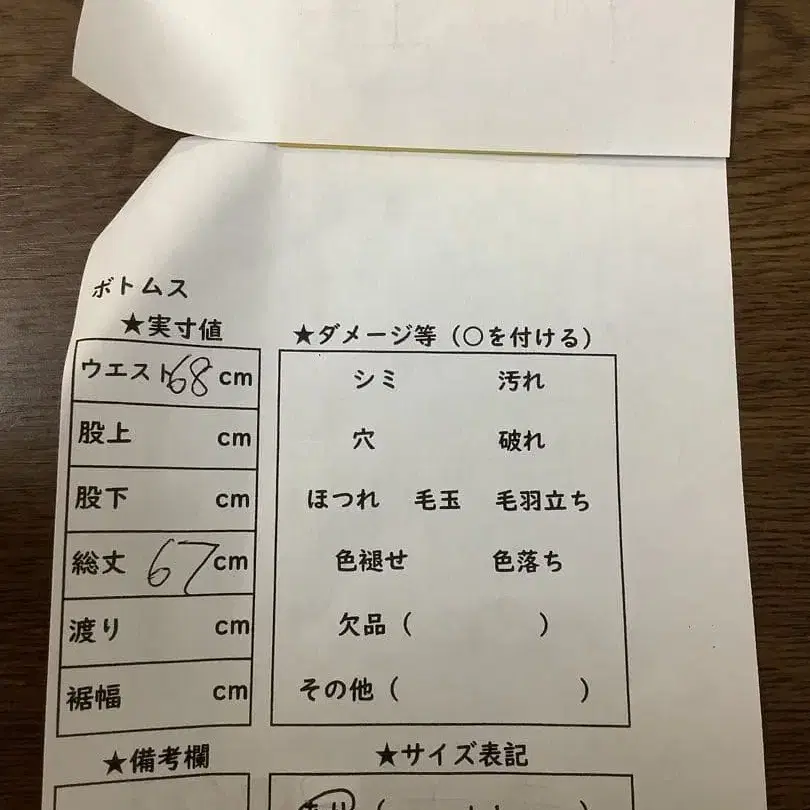 ボトムス
★実寸値
ウエスト68cm
股上 cm
股下 cm
総丈 67cm
渡り cm
裾幅 cm
★ダメージ等（○を付ける）
シミ 汚れ
穴 破れ
ほつれ 毛玉 毛羽立ち
色褪せ 色落ち
欠品（ ）
その他（ ）
★備考欄
★サイズ表記